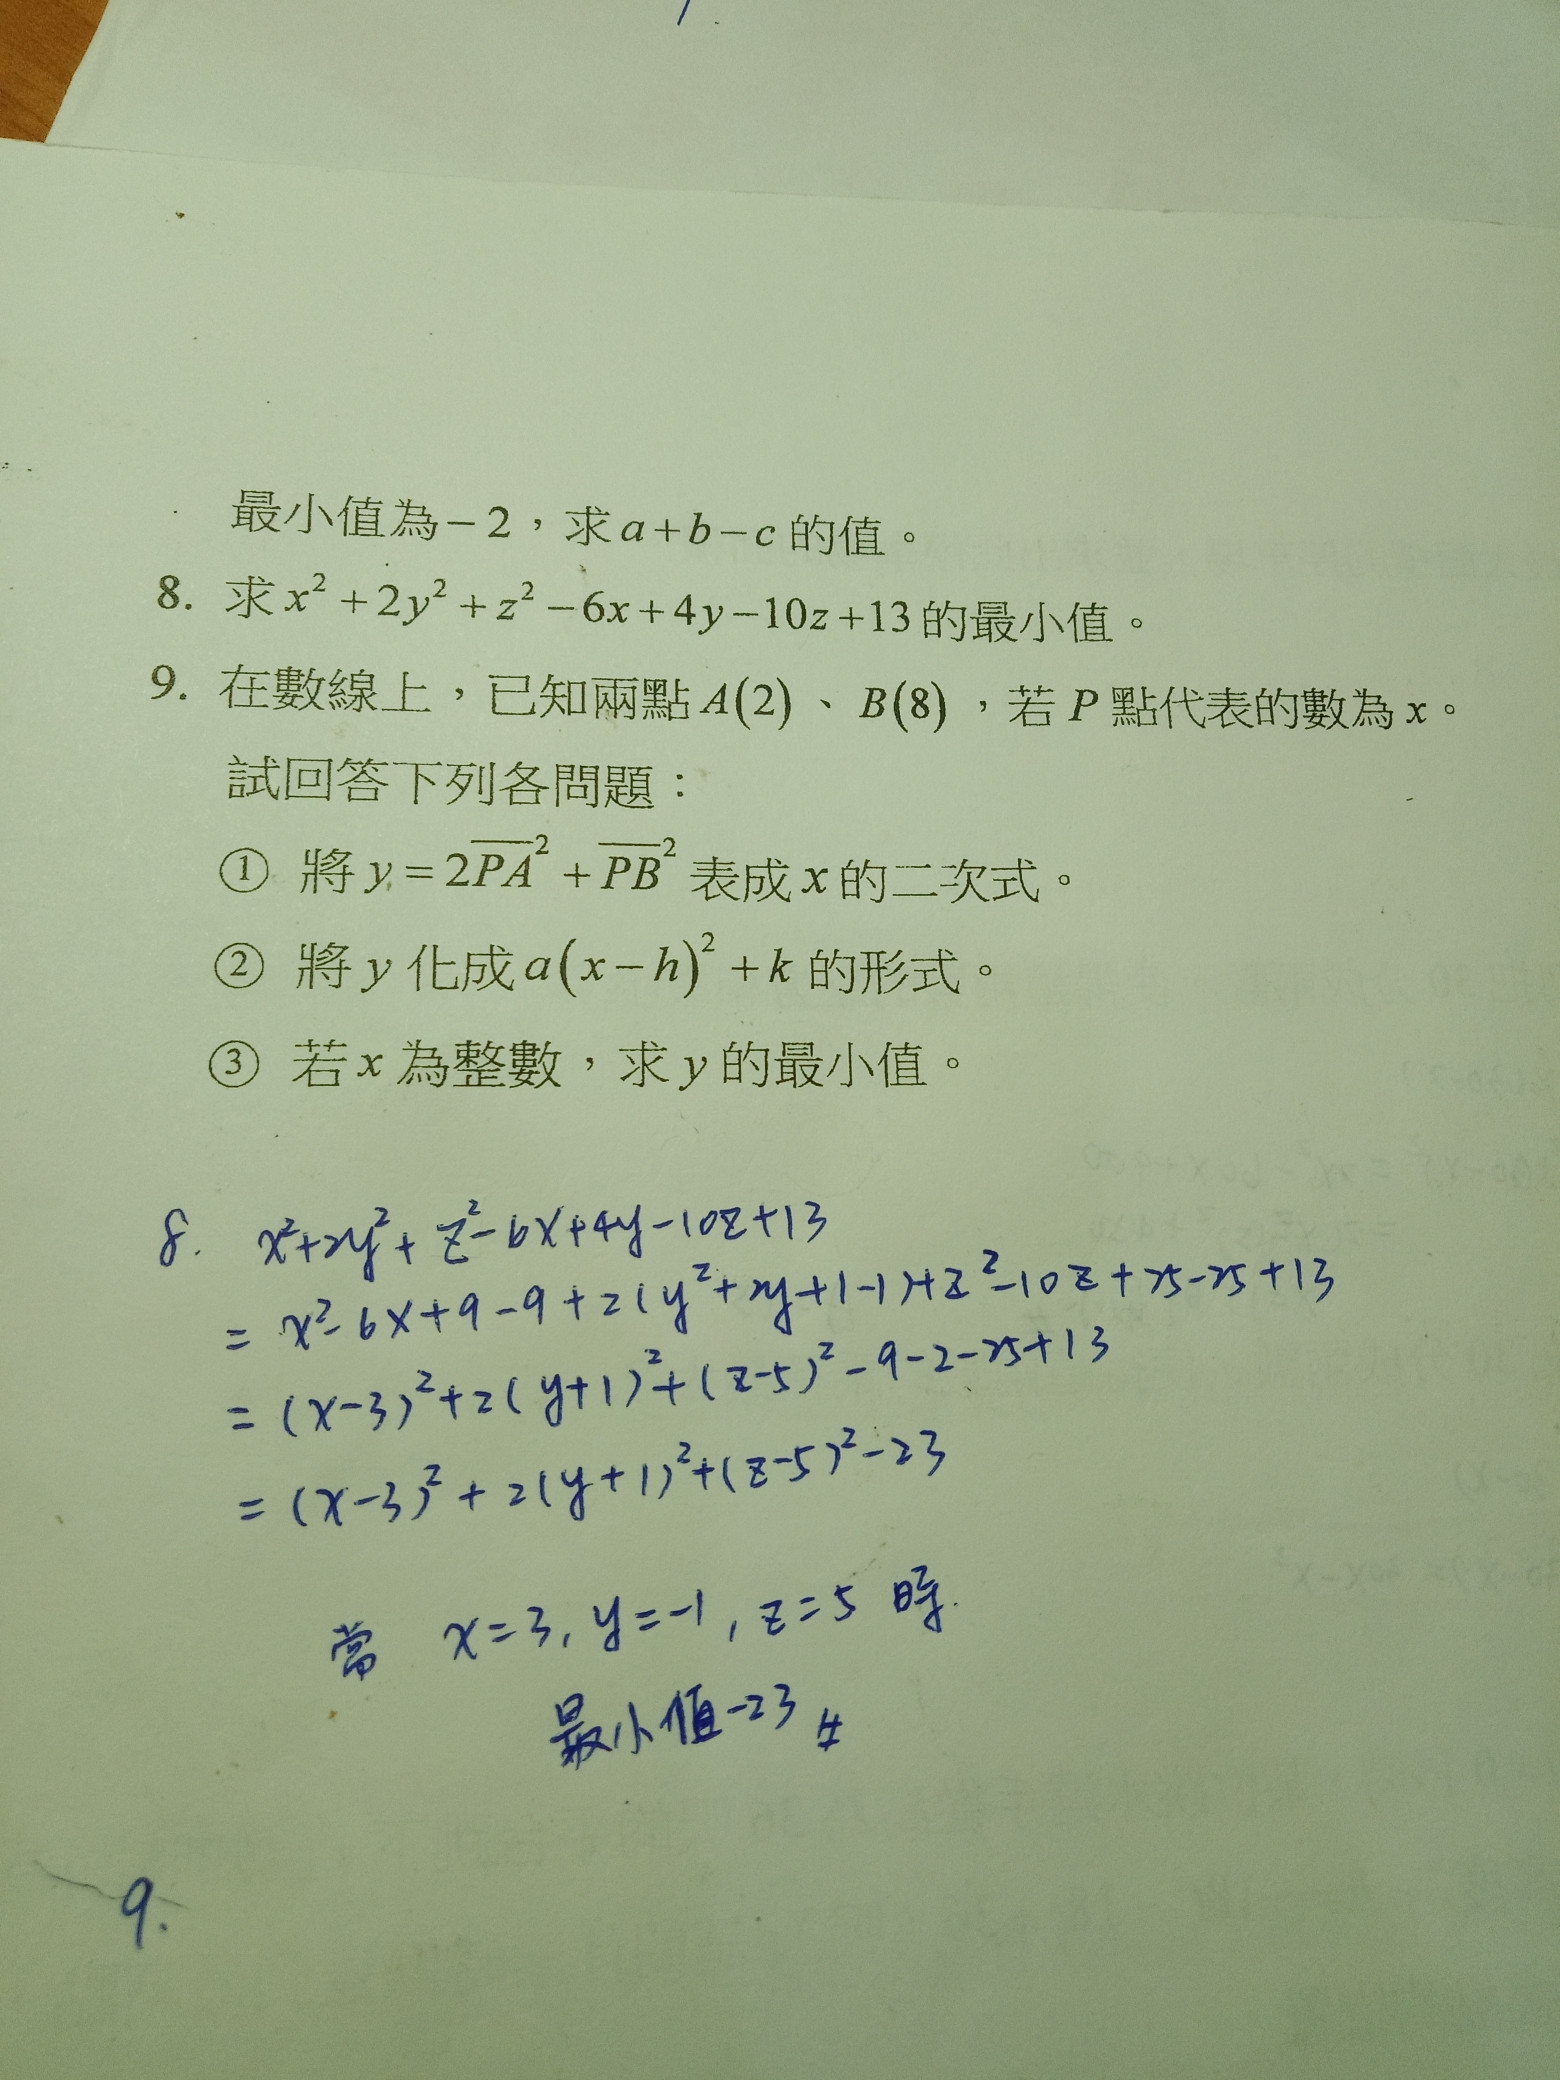 最小值為−2，求a+b−c的值。
8. 求x²+2y²+z²−6x+4y−10z+13的最小值。
9. 在數線上，已知兩點A(2)、B(8)，若P點代表的數為x。
試回答下列各問題：
① 將y=2\overline{PA}²+\overline{PB}²表成x的二次式。
② 將y化成a(x−h)²+k的形式。
③ 若x為整數，求y的最小值。
8. x²+2y²+z²-6x+4y-10z+13
= x²-6x+9-9+2(y²+2y+1-1)+z²-10z+25-25+13
= (x-3)²+2(y+1)²+(z-5)²-9-2-25+13
= (x-3)²+2(y+1)²+(z-5)²-23
當 x=3, y=-1, z=5 時.
最小值-23 #
9.